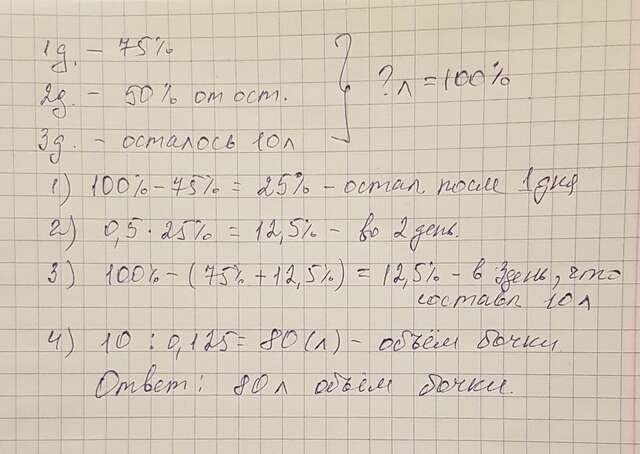 1д. – 75%
2д. – 50% от ост.
3д. – осталось 10л
? л = 100%
1) 100% – 75% = 25% – остал после 1 дня
2) 0,5 · 25% = 12,5% – во 2 день.
3) 100% – (75% + 12,5%) = 12,5% – в 3день, что
составл 10 л
4) 10 : 0,125 = 80 (л) – объём бочки
Ответ: 80 л объём бочки.